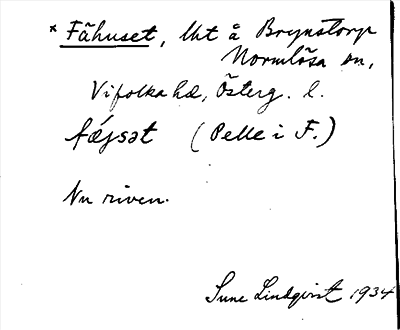 * Fähuset, lht å Brynstorp
Normlösa sn,
Vifolka hd, Österg. l.
fǽjsət (Pelle i F.)
Nu riven.
Sune Lindqvist 1934